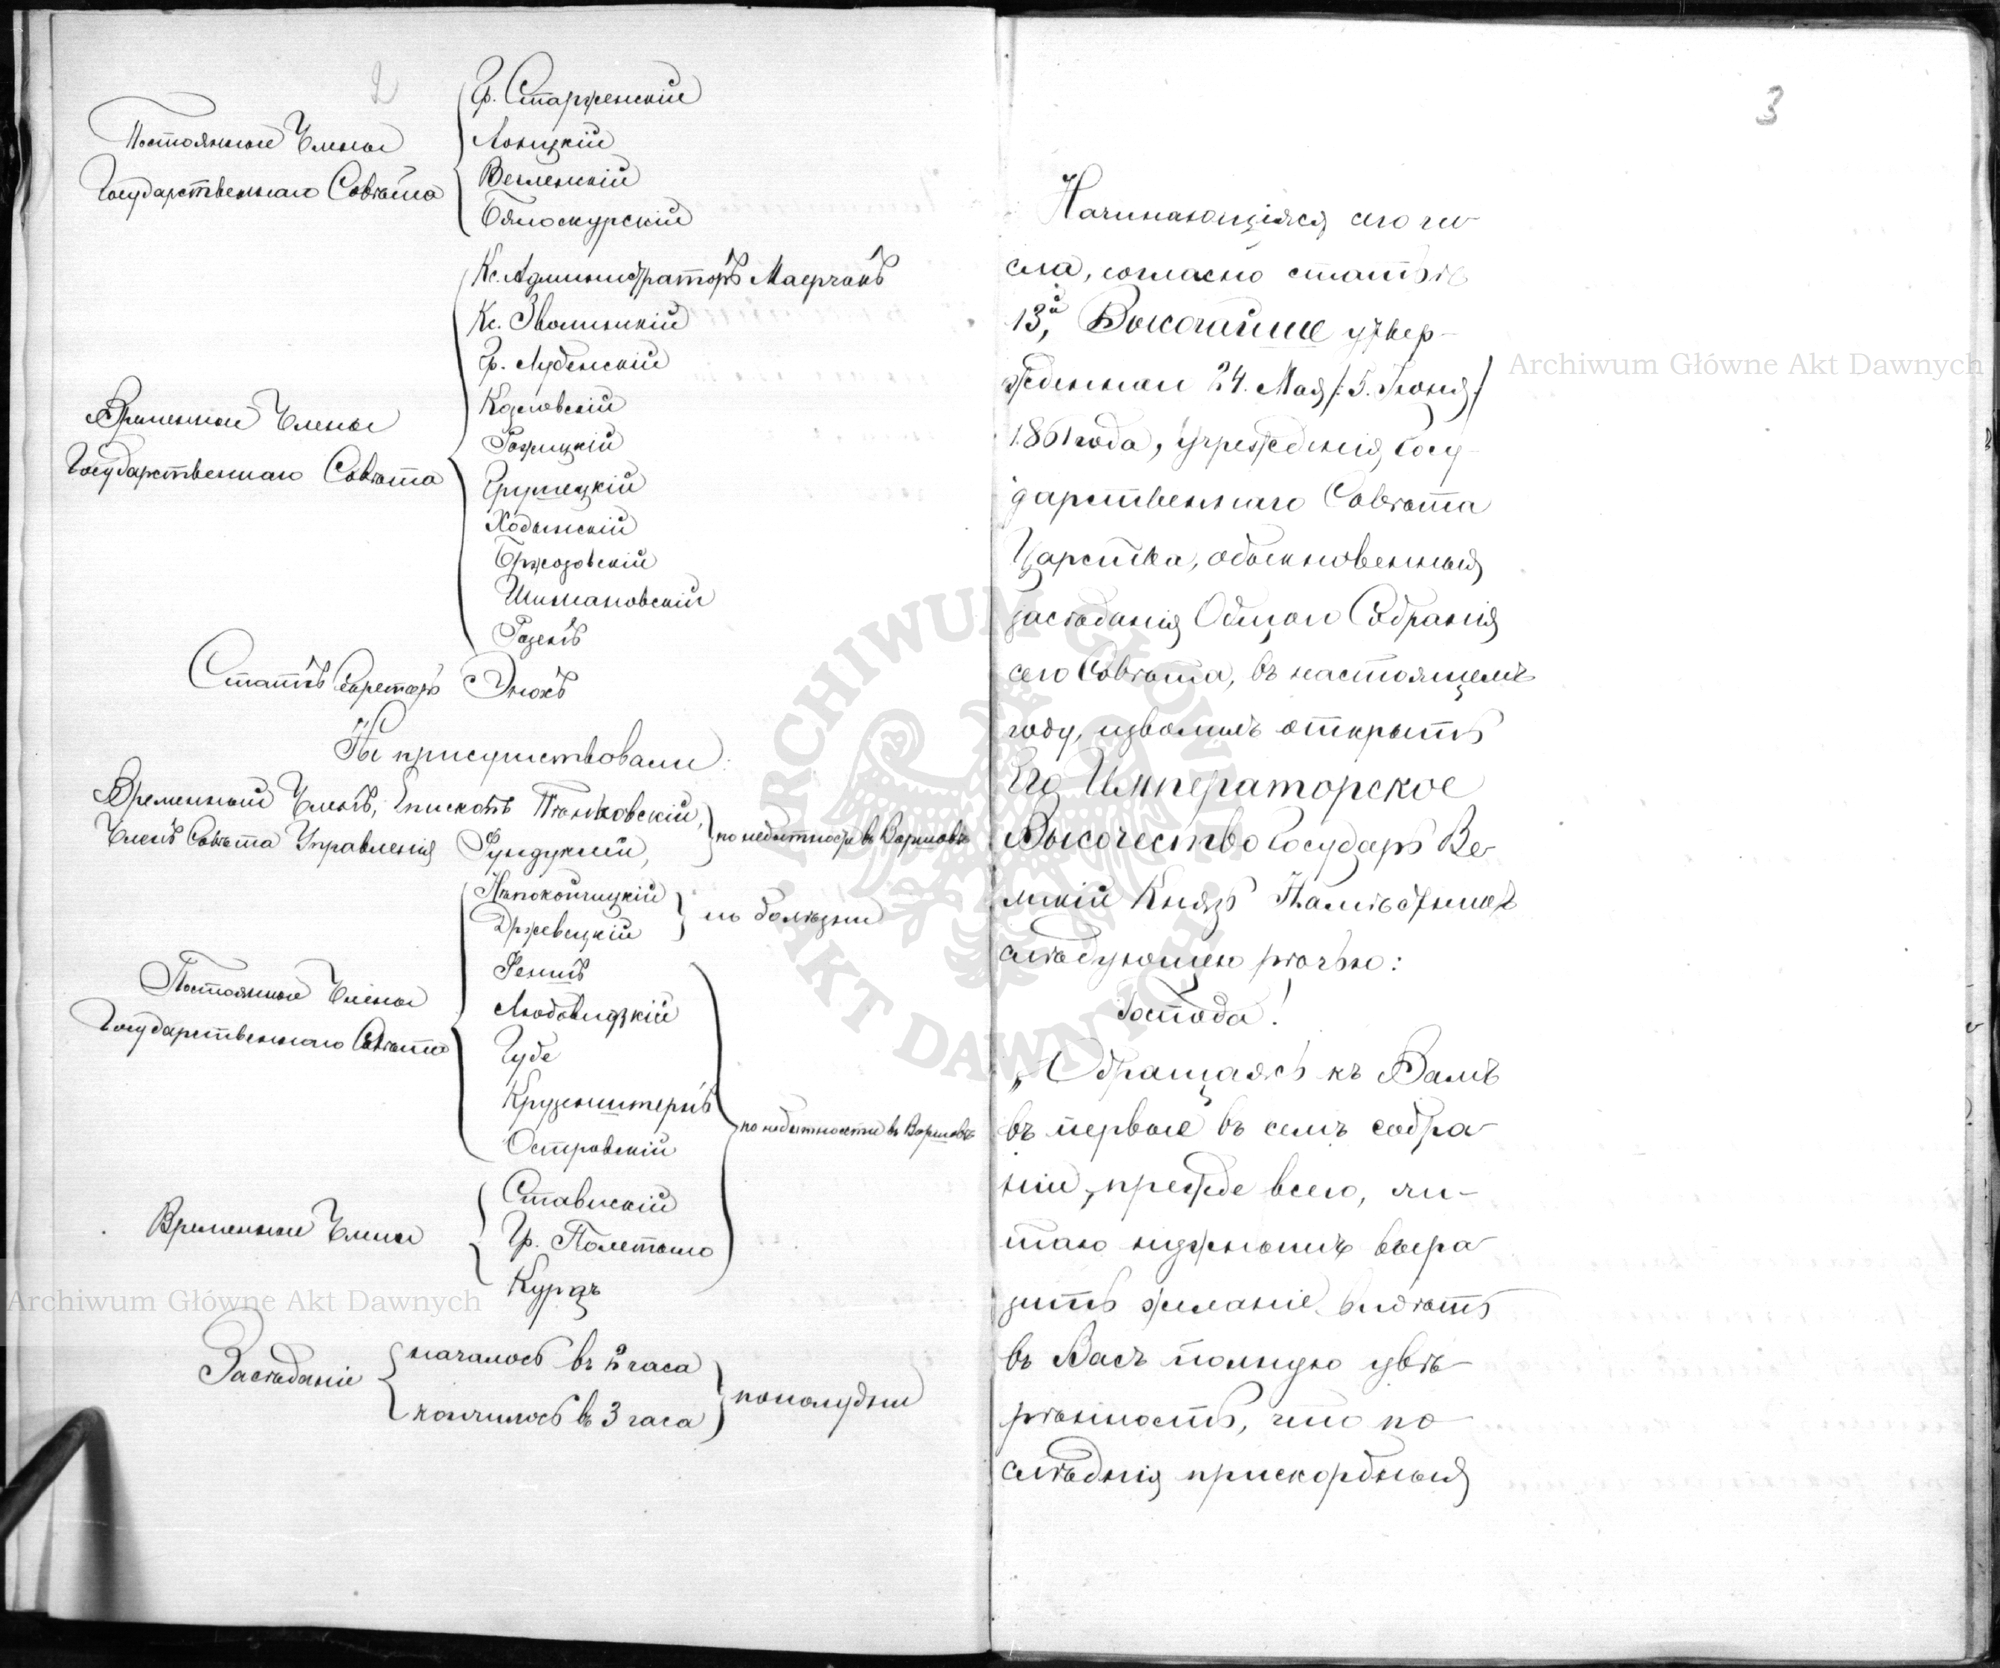 2
Постоянные Члены
Государственнаго Совѣта
Гр. Старженскій
Лонцкій
Венгленскій
Бялоскурскій
Временные Члены
Государственнаго Совѣта
Кс. Администраторъ Маерчакъ
Кс. Зволинскій
Гр. Лубенскій
Козловскій
Рожицкій
Грушецкій
Ходынскій
Бржозовскій
Шимановскій
Розенъ
Статсъ Секретарь Энохъ
Не присутствовали:
Временный Членъ, Епископъ Пѣньковскій,
Членъ Совѣта Управленія Фундуклей,
по небытности въ Варшавѣ
Постоянные Члены
Государственнаго Совѣта
Непокойчицкій
Држевецкій
по болѣзни
Феншъ
Любовидзкій
Губе
Крузенштернъ
Островскій
по небытности въ Варшавѣ
Временные Члены
Ставискій
Гр. Полетыло
Курцъ
Засѣданіе
началось въ 2 часа
кончилось въ 3 часа
пополудни
3
Начинающіяся сего чи-
сла, согласно статьѣ
13й, Высочайше утвер-
жденнаго 24. Мая /: 5. Іюня :/
1861 года, Учрежденія Госу-
дарственнаго Совѣта
Царства, обыкновенныя
засѣданія Общаго Собранія
сего Совѣта, въ настоящемъ
году, изволилъ открыть
Его Императорское
Высочество Государь Ве-
ликій Князь Намѣстникъ
слѣдующею рѣчью:
Господа!
„Обращаясь къ Вамъ
въ первые въ семъ собра-
ніи, прежде всего, чи-
таю нужнымъ выра-
зить желаніе видѣть
въ Васъ полную увѣ-
ренность, что по-
слѣднія прискорбныя
Archiwum Główne Akt Dawnych
Archiwum Główne Akt Dawnych
ARCHIWUM GŁÓWNE AKT DAWNYCH